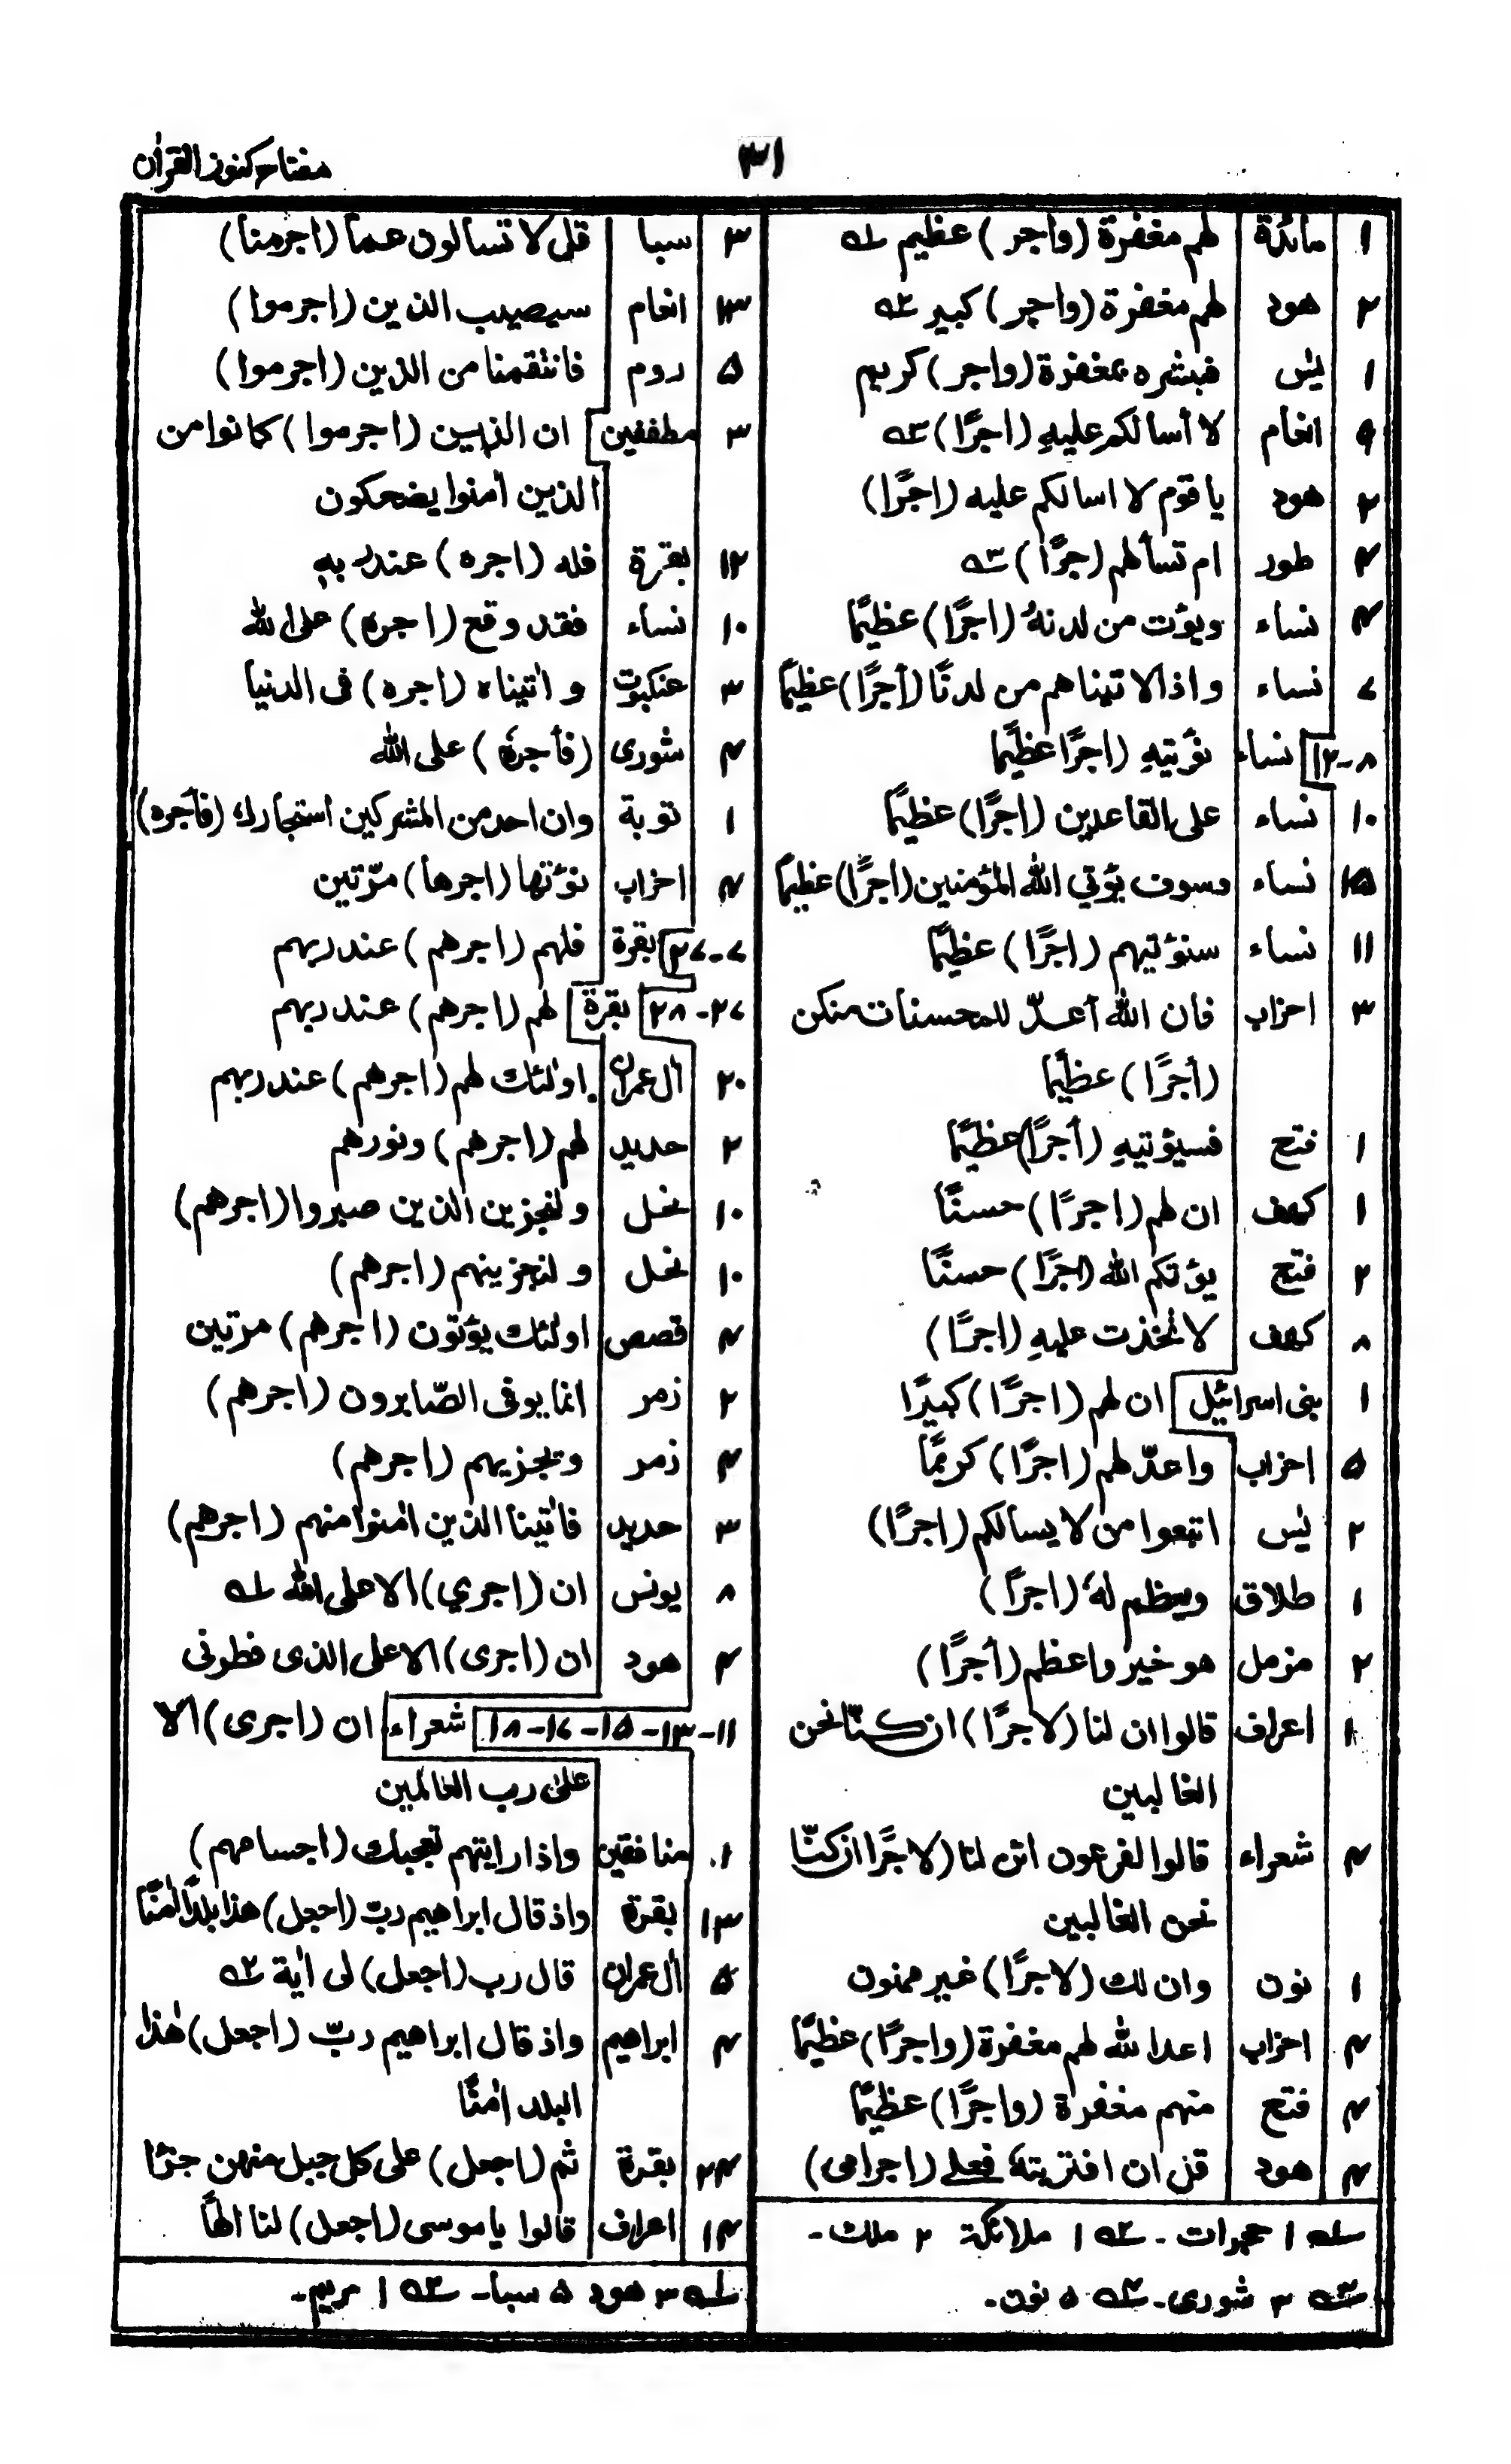 مفتاح کنوز القراٰن
۳۱
۱ مائدة لهم مغفرة (واجر) عظیم ؎۱
۲ هود لهم مغفرة (واجر) کبیر ؎۲
۱ یٰس فبشره بمغفرة (واجر) کریم
۹ انعام لا أسالکم علیهِ (اجرًا) ؎۳
۲ هود یا قوم لا اسالکم علیه (اجرًا)
۲ طور ام تسألهم (جرًا) ؎۴
۴ نساء ویؤت من لدنهُ (اجرًا) عظیمًا
۷ نساء واذالا تیناهم من لدنّا (أجرًا) عظیمًا
۸-۱۲ نساء نؤتیهِ (اجرًا عظیمًا
۱۰ نساء علی القاعدین (اجرًا) عظیمًا
۱۵ نساء وسوف یؤتي الله المؤمنین (اجرًا) عظیمًا
۱۱ نساء سنؤتیهم (اجرًا) عظیمًا
۳ احزاب فان الله أعدّ للمحسنات منکن
(أجرًا) عظیمًا
۱ فتح فسیؤتیهِ (أجرًا) عظیمًا
۱ کهف ان لهم (اجرًا) حسنًا
۲ فتح یؤتکم الله (اجرًا) حسنًا
۸ کهف لاتخذت علیهِ (اجرًا)
۱ بنی اسرائیل ان لهم (اجرًا) کبیرًا
۵ احزاب واعدّ لهم (اجرًا) کریمًا
۲ یٰس اتبعوا من لا یسالکم (اجرًا)
۱ طلاق ویعظم لهٗ (اجرًا)
۲ مزمل هو خیر واعظم (أجرًا)
۱ اعراف قالوا ان لنا (لاجرًا) ان کنّا نحن
الغالبین
۴ شعراء قالوا لفرعون ائن لنا (لاجرًا ان کنّا
نحن الغالبین
۱ نون وان لك (لاجرًا) غیر ممنون
۴ احزاب اعدا لله لهم مغفرة (واجرًا) عظیمًا
۴ فتح منهم مغفرة (واجرًا) عظیمًا
۴ هود قل ان افتریتهٗ فعلي (اجرامی)
؎۱ ۱ حجرات - ؎۲ ۱ ملائکة ۲ ملك -
؎۳ ۳ شوری - ؎۴ ۵ نون -
۳ سبا قل لا تسالون عما (اجرمنا)
۱۳ انعام سیصیب الذین (اجرموا)
۵ روم فانتقمنا من الذین (اجرموا)
۳ مطففین ان الذین (اجرموا) کانوا من
الذین اٰمنوا یضحکون
۱۲ بقرة فله (اجره) عند ربهِ
۱۰ نساء فقد وقع (اجره) علی الله
۳ عنکبوت واٰتیناه (اجره) فی الدنیا
۴ شوری (فأجرهٗ) علی الله
۱ توبة وان احد من المشرکین استجارك (فأجره)
۴ احزاب نؤتها (اجرها) مرّتین
۷-۳۷ بقرة فلهم (اجرهم) عند ربهم
۳۷-۳۸ بقرة لهم (اجرهم) عند ربهم
۲۰ اٰل عمران اولٰئك لهم (اجرهم) عند ربهم
۲ حدید لهم (اجرهم) ونورهم
۱۰ نحل ولنجزین الذین صبروا (اجرهم)
۱۰ نحل ولنجزینهم (اجرهم)
۴ قصص اولئك یؤتون (اجرهم) مرتین
۲ زمر انما یوفی الصّابرون (اجرهم)
۴ زمر ویجزیهم (اجرهم)
۳ حدید فاٰتینا الذین اٰمنوا منهم (اجرهم)
۸ یونس ان (اجري) الا علی الله ؎۱
۴ هود ان (اجری) الا علی الذی فطرنی
۱۱-۱۳-۱۵-۱۷-۱۸ شعراء ان (اجری) الا
علیٰ رب العالمین
۱ منافقین واذا رایتهم تعجبك (اجسامهم)
۱۳ بقرة واذ قال ابراهیم ربّ (اجعل) هذا بلدًا اٰمنًا
۵ اٰل عمران قال رب (اجعل) لی اٰیة ؎۲
۴ ابراهیم واذ قال ابراهیم ربّ (اجعل) هٰذا
البلد اٰمنًا
۲۴ بقرة ثم (اجعل) علی کل جبل منهن جزءًا
۱۴ اعراف قالوا یا موسی (اجعل) لنا الهًا
؎۱ ۳ هود ۵ سبا - ؎۲ ۱ مریم -